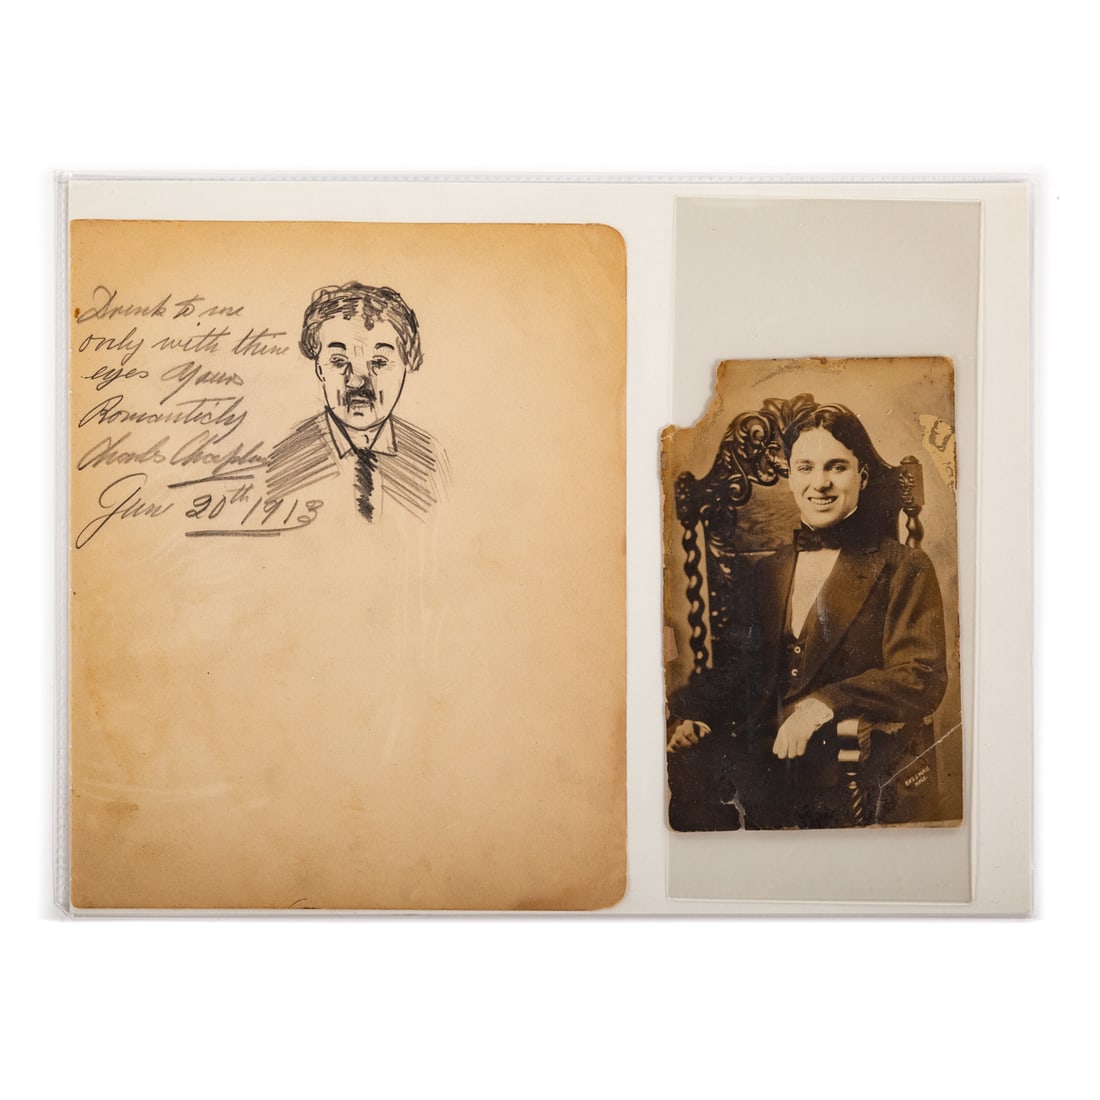 Drink to me
only with thine
eyes Yours
Romanticly
Charls Chaplin
Jun 20th 1913